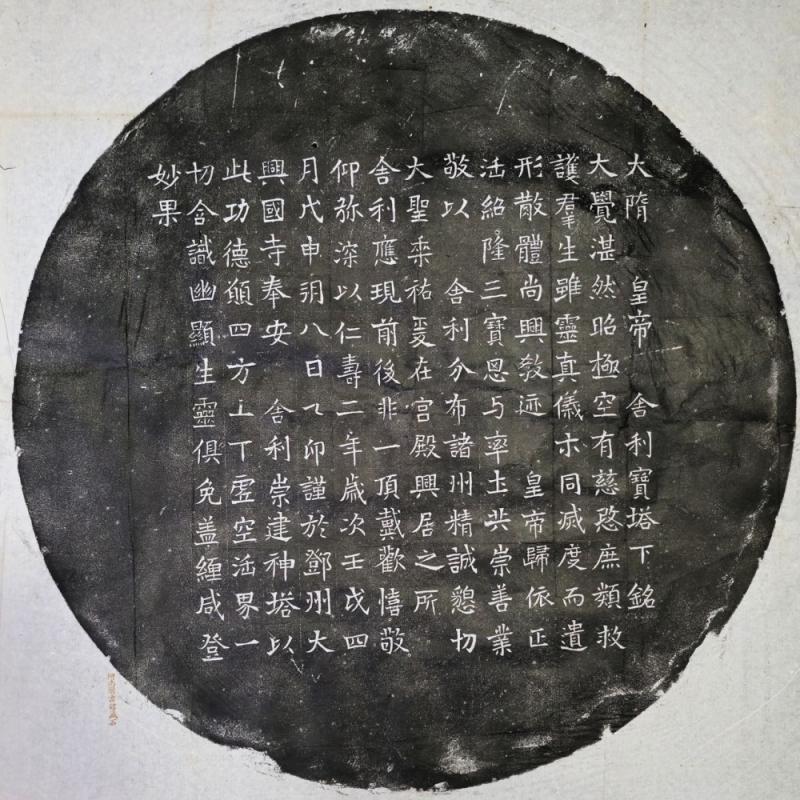 大隋 皇帝 舍利寶塔下銘
大覺湛然昭極空有慈愍庶類救
護羣生雖靈真儀示同滅度而遺
形散體尚興教迹 皇帝歸依正
法紹隆三寶思与率土共崇善業
敬以 舍利分布諸州精誠懇切
大聖垂祐爰在宫殿興居之所
舍利應現前後非一頂戴歡憘敬
仰弥深以仁壽二年歲次壬戌四
月戊申朔八日乙卯謹於鄧州大
興國寺奉安 舍利崇建神塔以
此功德願四方上下虛空法界一
切含識幽顯生靈俱免盖纏咸登
妙果